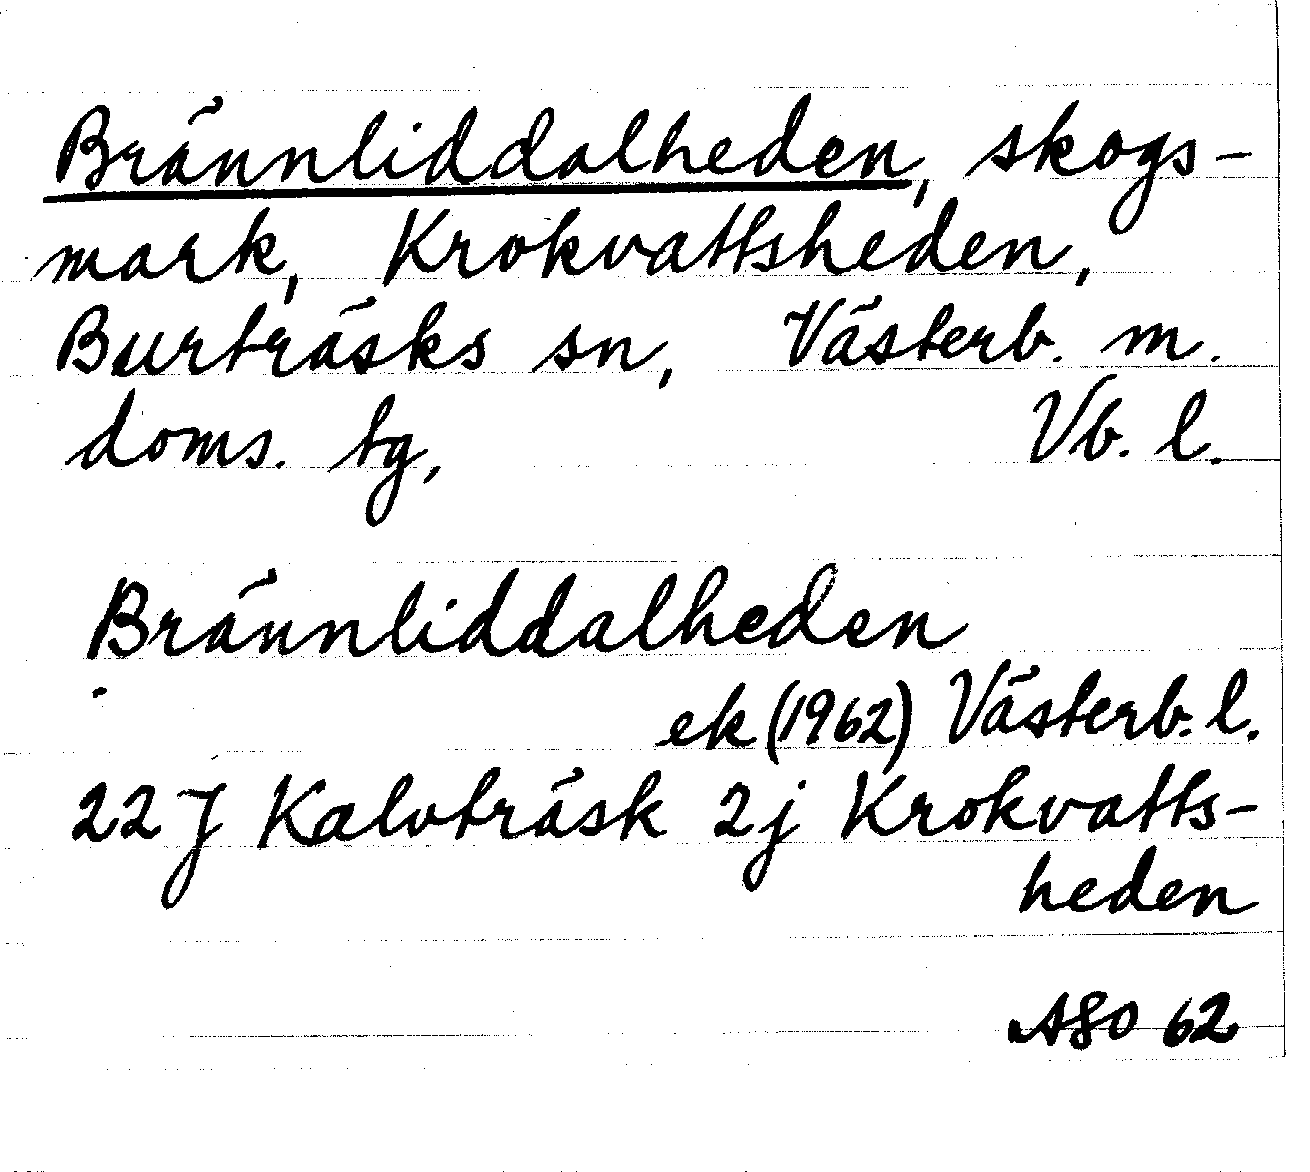 Brännliddalheden, skogs-
mark, Krokvattsheden,
Burträsks sn, Västerb. m.
doms. tg, Vb. l.
Brännliddalheden
ek (1962) Västerb. l.
22 J Kalvträsk 2j Krokvatts-
heden
ASO 62